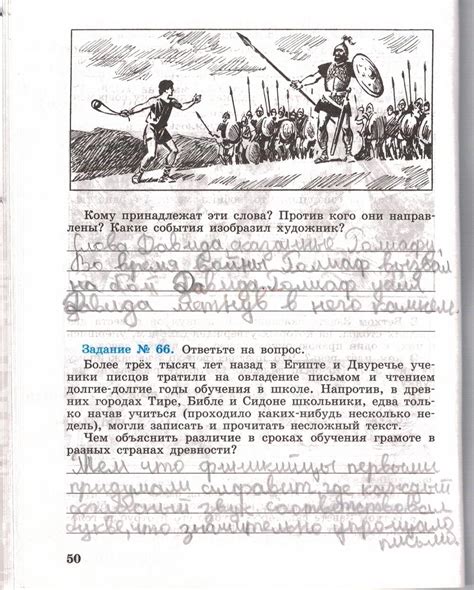 Кому принадлежат эти слова? Против кого они направ-
лены? Какие события изобразил художник?
Слова Давида сказанные Голиафу.
Во время войны Голиаф вызвал
на бой Давида. Голиаф убил
Давида метнув в него камнем.
Задание № 66. Ответьте на вопрос.
Более трёх тысяч лет назад в Египте и Двуречье уче-
ники писцов тратили на овладение письмом и чтением
долгие-долгие годы обучения в школе. Напротив, в древ-
них городах Тире, Библе и Сидоне школьники, едва толь-
ко начав учиться (проходило каких-нибудь несколько не-
дель), могли записать и прочитать несложный текст.
Чем объяснить различие в сроках обучения грамоте в
разных странах древности?
Тем что финикийцы первыми
придумали алфавит где каждый
согласный звук соответствовал
букве, что значительно упрощало
письмо
50